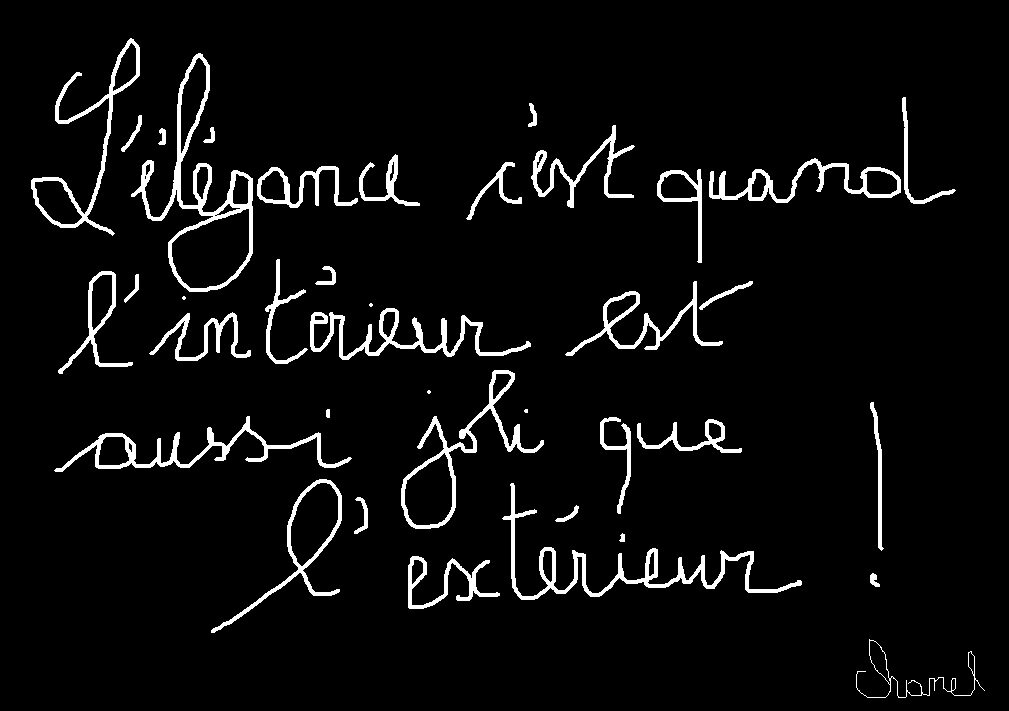 L'élégance c'est quand
l'intérieur est
aussi joli que
l'extérieur !
Chanel